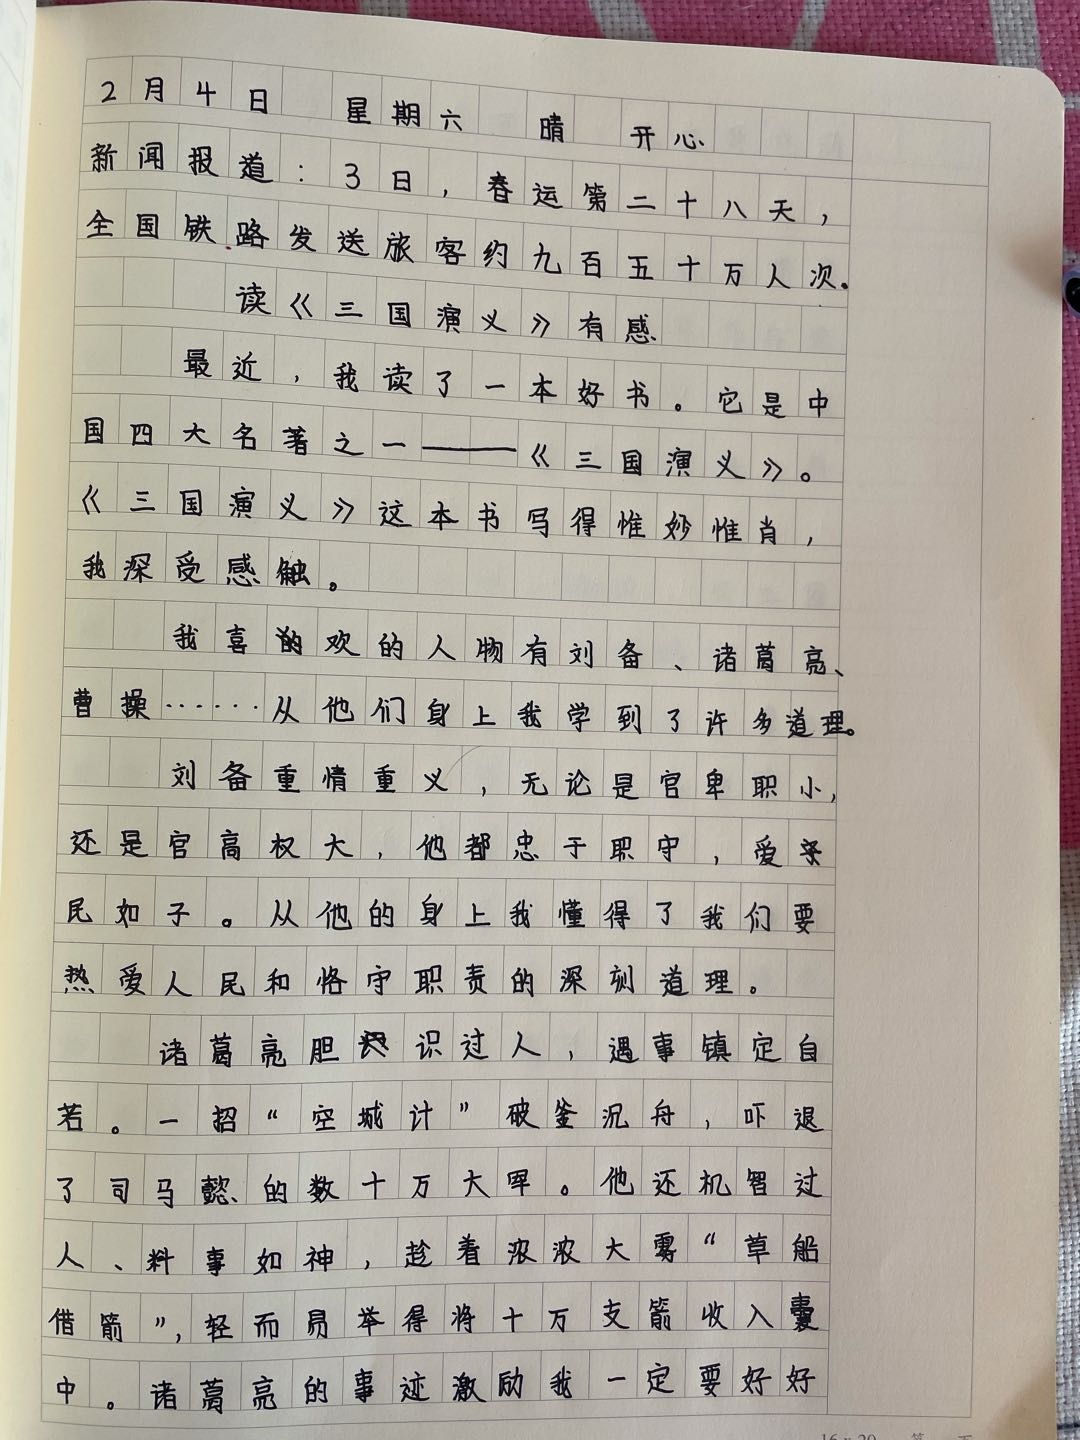 2月4日 星期六 晴 开心
新闻报道:3日,春运第二十八天,
全国铁路发送旅客约九百五十万人次。
读《三国演义》有感
最近,我读了一本好书。它是中
国四大名著之一——《三国演义》。
《三国演义》这本书写得惟妙惟肖,
我深受感触。
我喜欢的人物有刘备、诸葛亮、
曹操……从他们身上我学到了许多道理。
刘备重情重义,无论是官卑职小,
还是官高权大,他都忠于职守,爱
民如子。从他的身上我懂得了我们要
热爱人民和恪守职责的深刻道理。
诸葛亮胆识过人,遇事镇定自
若。一招“空城计”破釜沉舟,吓退
了司马懿的数十万大军。他还机智过
人、料事如神,趁着浓浓大雾“草船
借箭”,轻而易举得将十万支箭收入囊
中。诸葛亮的事迹激励我一定要好好
16×20 第 页